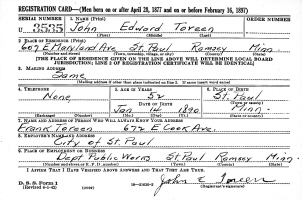 REGISTRATION CARD—(Men born on or after April 28, 1877 and on or before February 16, 1897)
SERIAL NUMBER 1. NAME (Print) ORDER NUMBER
U 3535 John Edward Toreen
(First) (Middle) (Last)
2. PLACE OF RESIDENCE (Print)
607 E Maryland Ave St. Paul Ramsey Minn.
(Number and street) (Town, township, village, or city) (County) (State)
[THE PLACE OF RESIDENCE GIVEN ON THE LINE ABOVE WILL DETERMINE LOCAL BOARD
JURISDICTION; LINE 2 OF REGISTRATION CERTIFICATE WILL BE IDENTICAL]
3. MAILING ADDRESS
Same
(Mailing address if other than place indicated on line 2. If same insert word same)
4. TELEPHONE 5. AGE IN YEARS 6. PLACE OF BIRTH
None 52 St. Paul
DATE OF BIRTH (Town or county)
Jan 14 1890 Minn.
(Mo.) (Day) (Yr.) (State or country)
7. NAME AND ADDRESS OF PERSON WHO WILL ALWAYS KNOW YOUR ADDRESS
Frank Toreen 672 E Cook Ave.
8. EMPLOYER'S NAME AND ADDRESS
City of St. Paul
9. PLACE OF EMPLOYMENT OR BUSINESS
Dept Public Works St. Paul Ramsey Minn.
(Number and street or R. F. D. number) (Town) (County) (State)
I AFFIRM THAT I HAVE VERIFIED ABOVE ANSWERS AND THAT THEY ARE TRUE.
D. S. S. Form 1
(Revised 4-1-42) (over) John E Toreen
(Registrant's signature)